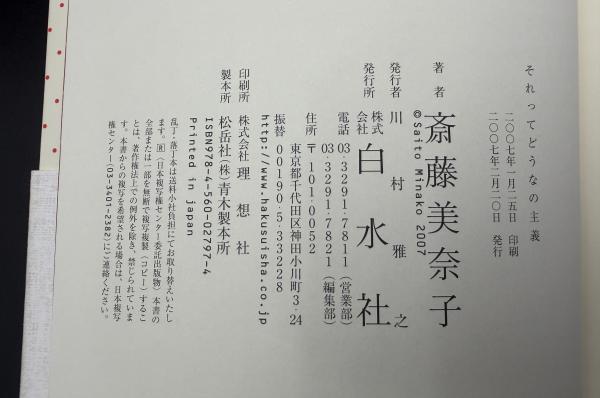 それってどうなの主義
二〇〇七年一月二五日 印刷
二〇〇七年二月二〇日 発行
著者 斎藤美奈子
©Saito Minako 2007
発行者 川村雅之
発行所 株式会社 白水社
電話 03・3291・7811(営業部)
03・3291・7821(編集部)
住所 〒101・0052
東京都千代田区神田小川町3・24
振替 00190・5・33228
http://www.hakusuisha.co.jp
印刷所 株式会社 理想社
製本所 松岳社(株)青木製本所
ISBN978-4-560-02797-4
Printed in japan
乱丁・落丁本は送料小社負担にてお取り替えいたし
ます。Ⓡ〈日本複写権センター委託出版物〉本書の
全部または一部を無断で複写複製(コピー)するこ
とは、著作権法上での例外を除き、禁じられていま
す。本書からの複写を希望される場合は、日本複写
権センター(03-3401-2382)にご連絡ください。